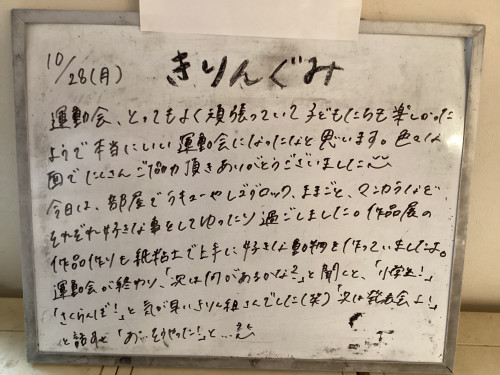 10/28(月)
きりんぐみ
運動会、とってもよく頑張っていて子どもたちも楽しかった
ようで本当にいい運動会になったなと思います。色々な
面でたくさんご協力頂きありがとうございました
今日は、部屋でラキューやレゴブロック、ままごと、マンカラなど
それぞれ好きな事をしてゆったり過ごしました。作品展の
作品作りも紙粘土で上手に好きな動物を作っていましたよ。
運動会が終わり、「次は何があるかな？」と聞くと、「小学生！」
「さくらんぼ！」と気が早いきりん組さんでした(笑)「次は発表会よ！」
と話すと「あ、そうやった！」と…